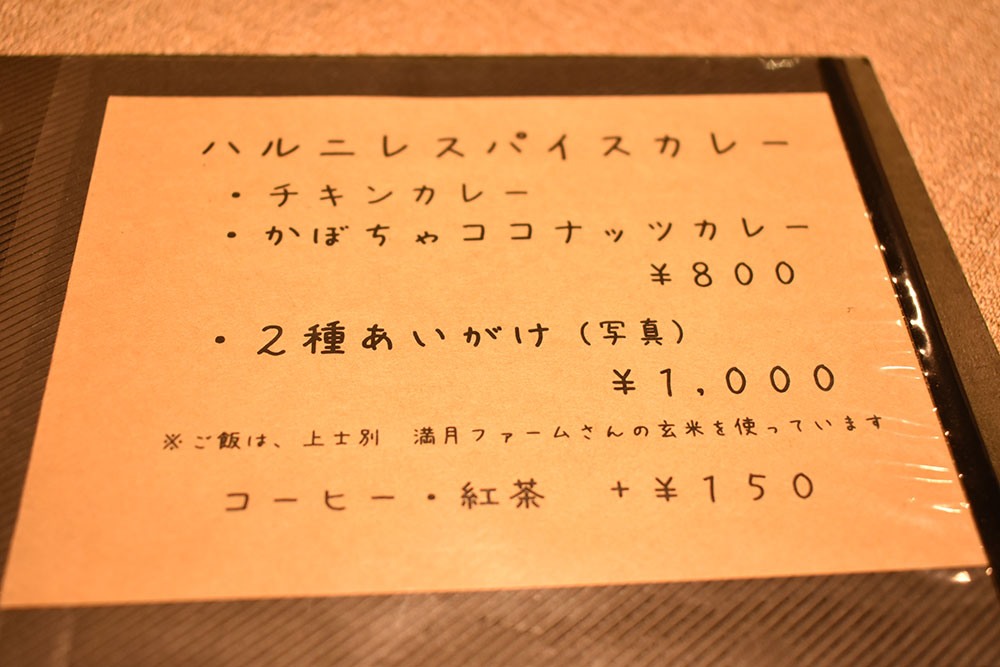 ハルニレスパイスカレー
・チキンカレー
・かぼちゃココナッツカレー
¥800
・2種あいがけ（写真）
¥1,000
※ご飯は、上士別　満月ファームさんの玄米を使っています
コーヒー・紅茶　+¥150